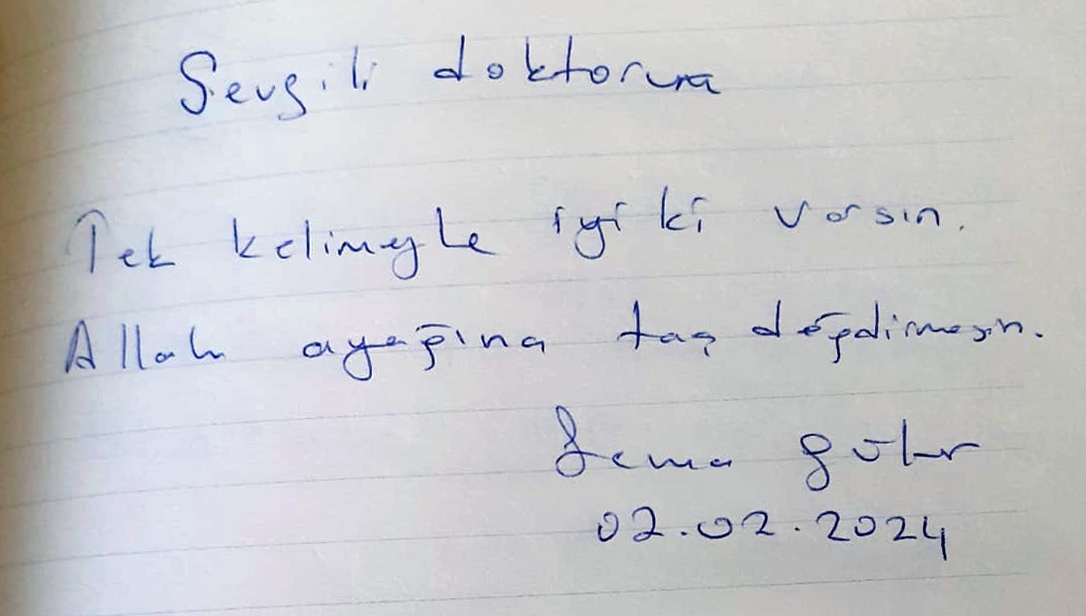 Sevgili doktorum
Tek kelimeyle iyi ki varsın.
Allah ayağına taş değdirmesin.
Sema Güler
02.02.2024